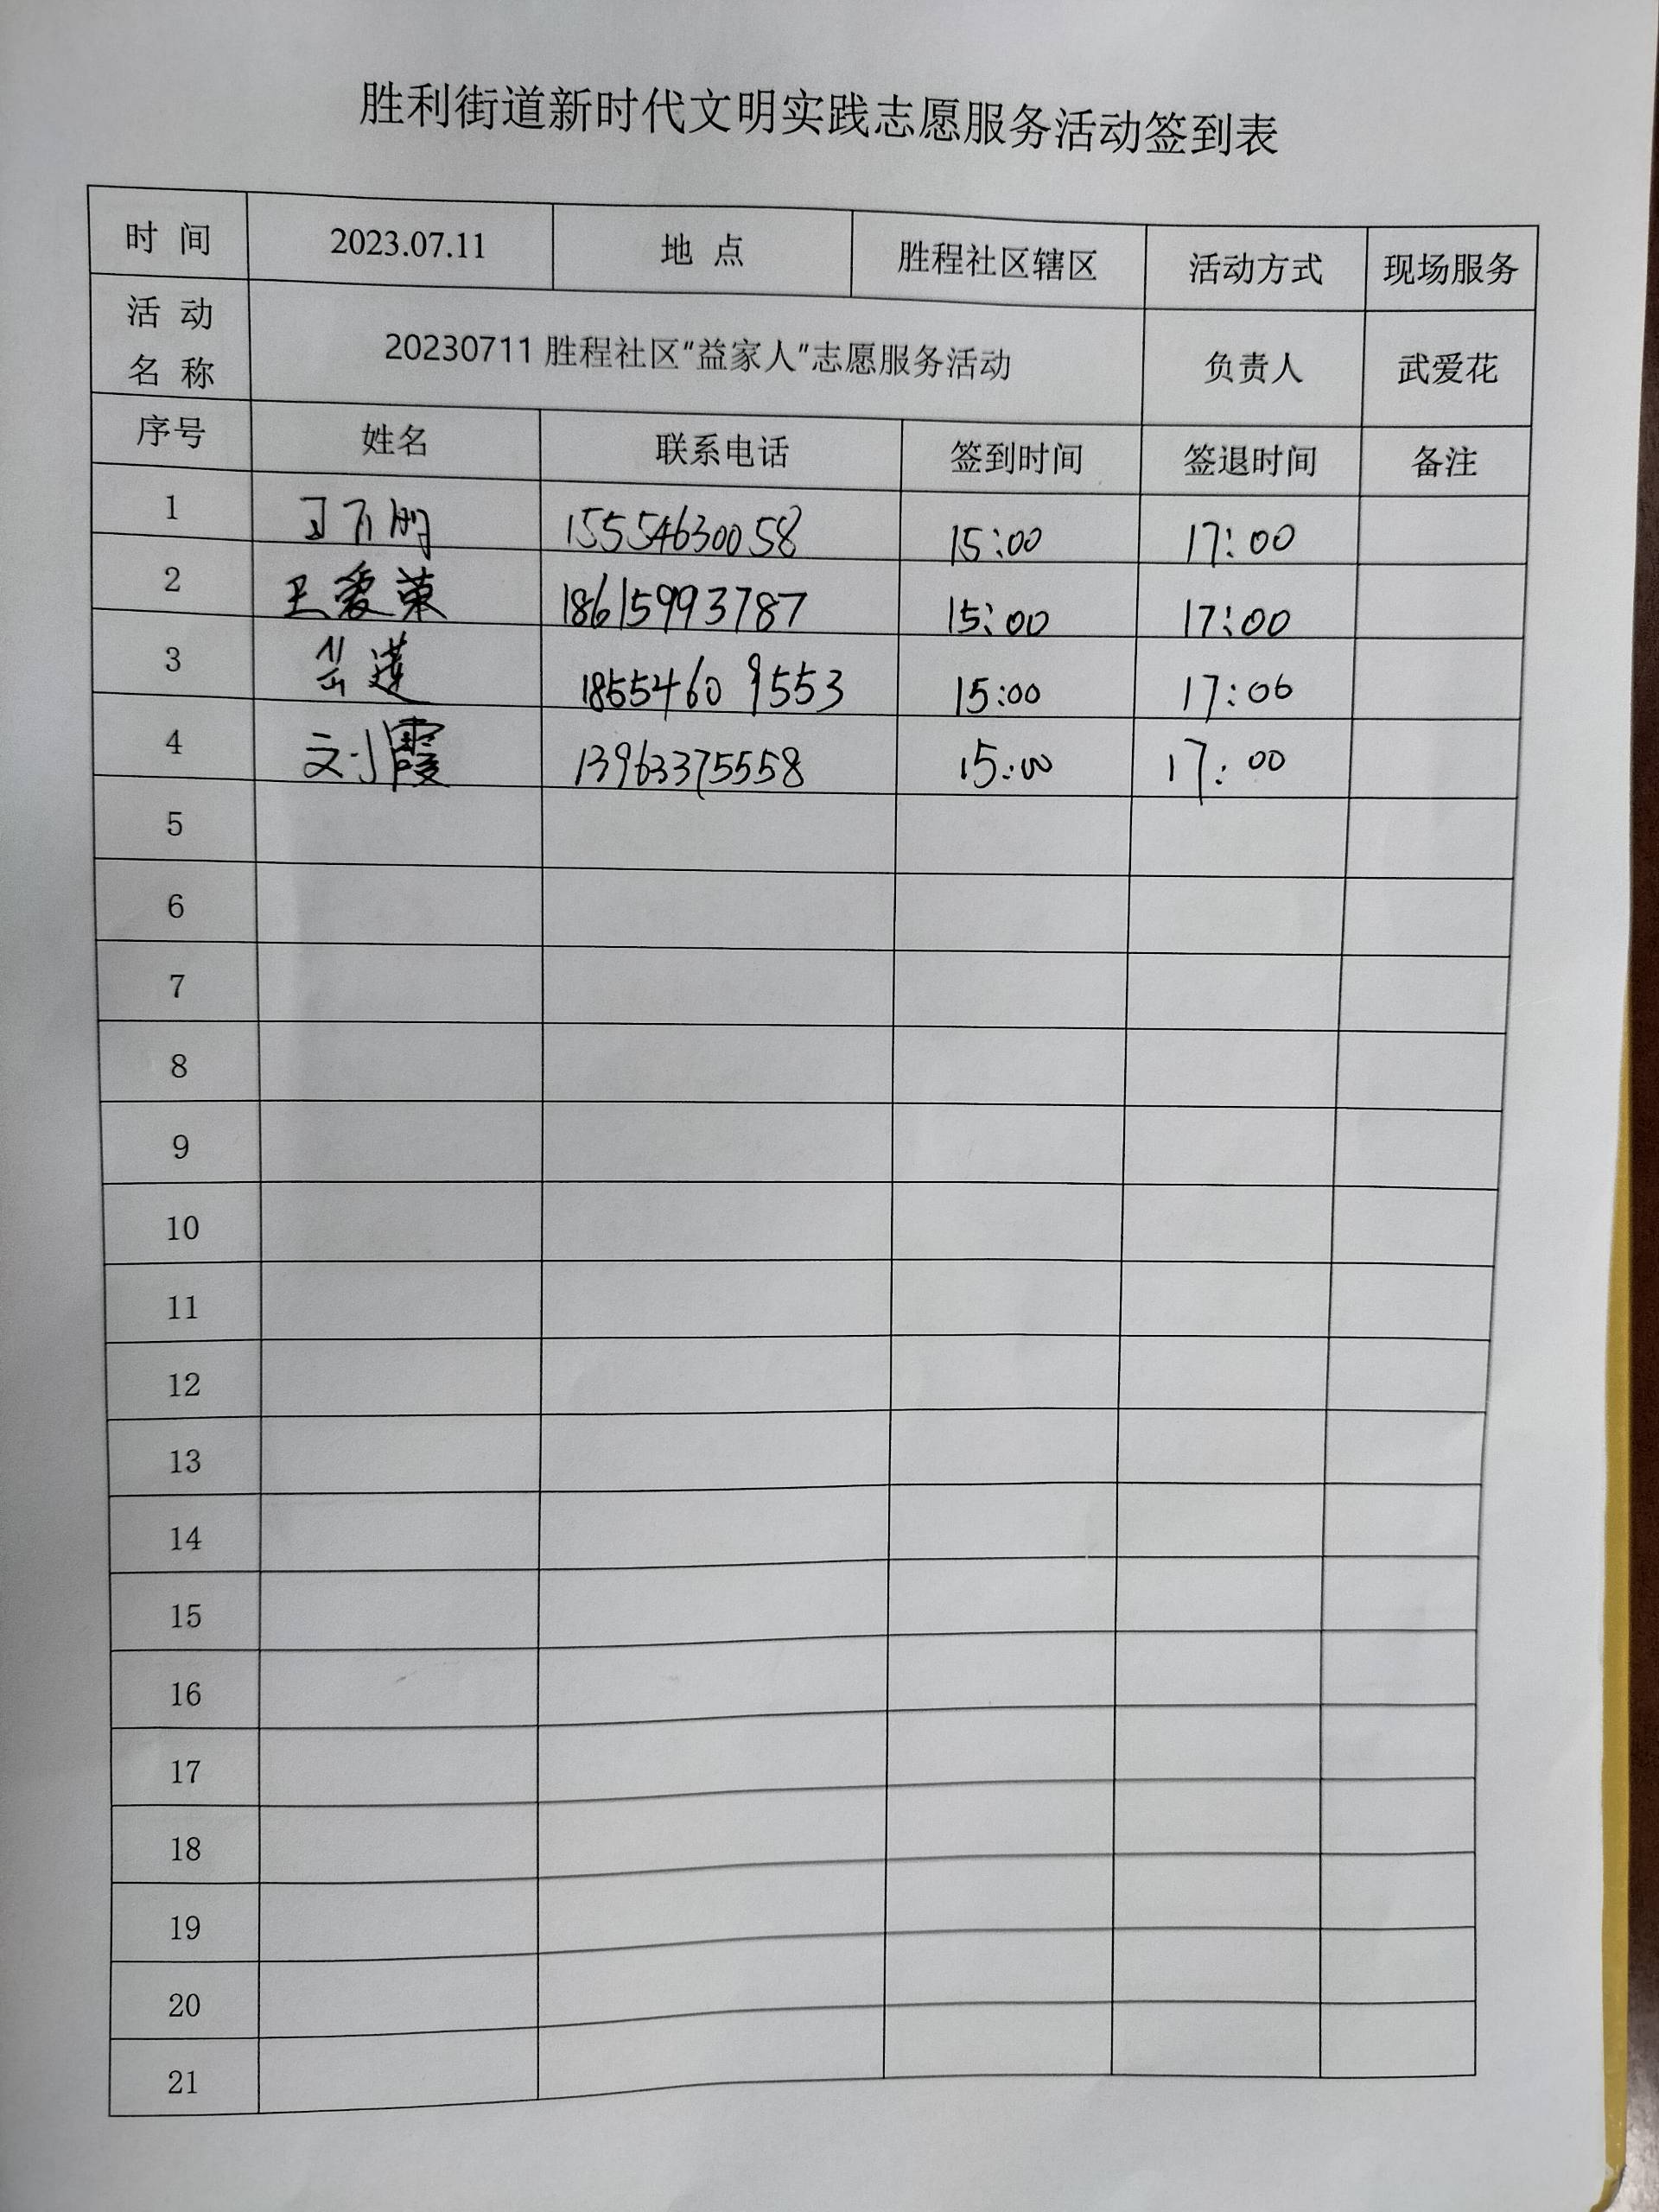 胜利街道新时代文明实践志愿服务活动签到表
时 间 2023.07.11 地 点 胜程社区辖区 活动方式 现场服务
活 动
名 称 20230711 胜程社区“益家人”志愿服务活动 负责人 武爱花
序号 姓名 联系电话 签到时间 签退时间 备注
1 15554630058 15:00 17:00
2 王爱荣 18615993787 15:00 17:00
3 岳莲 18554609553 15:00 17:00
4 刘霞 13963375558 15:00 17:00
5
6
7
8
9
10
11
12
13
14
15
16
17
18
19
20
21